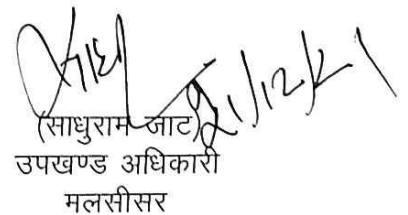 21/12/21
(साधुराम जाट)
उपखण्ड अधिकारी
मलसीसर